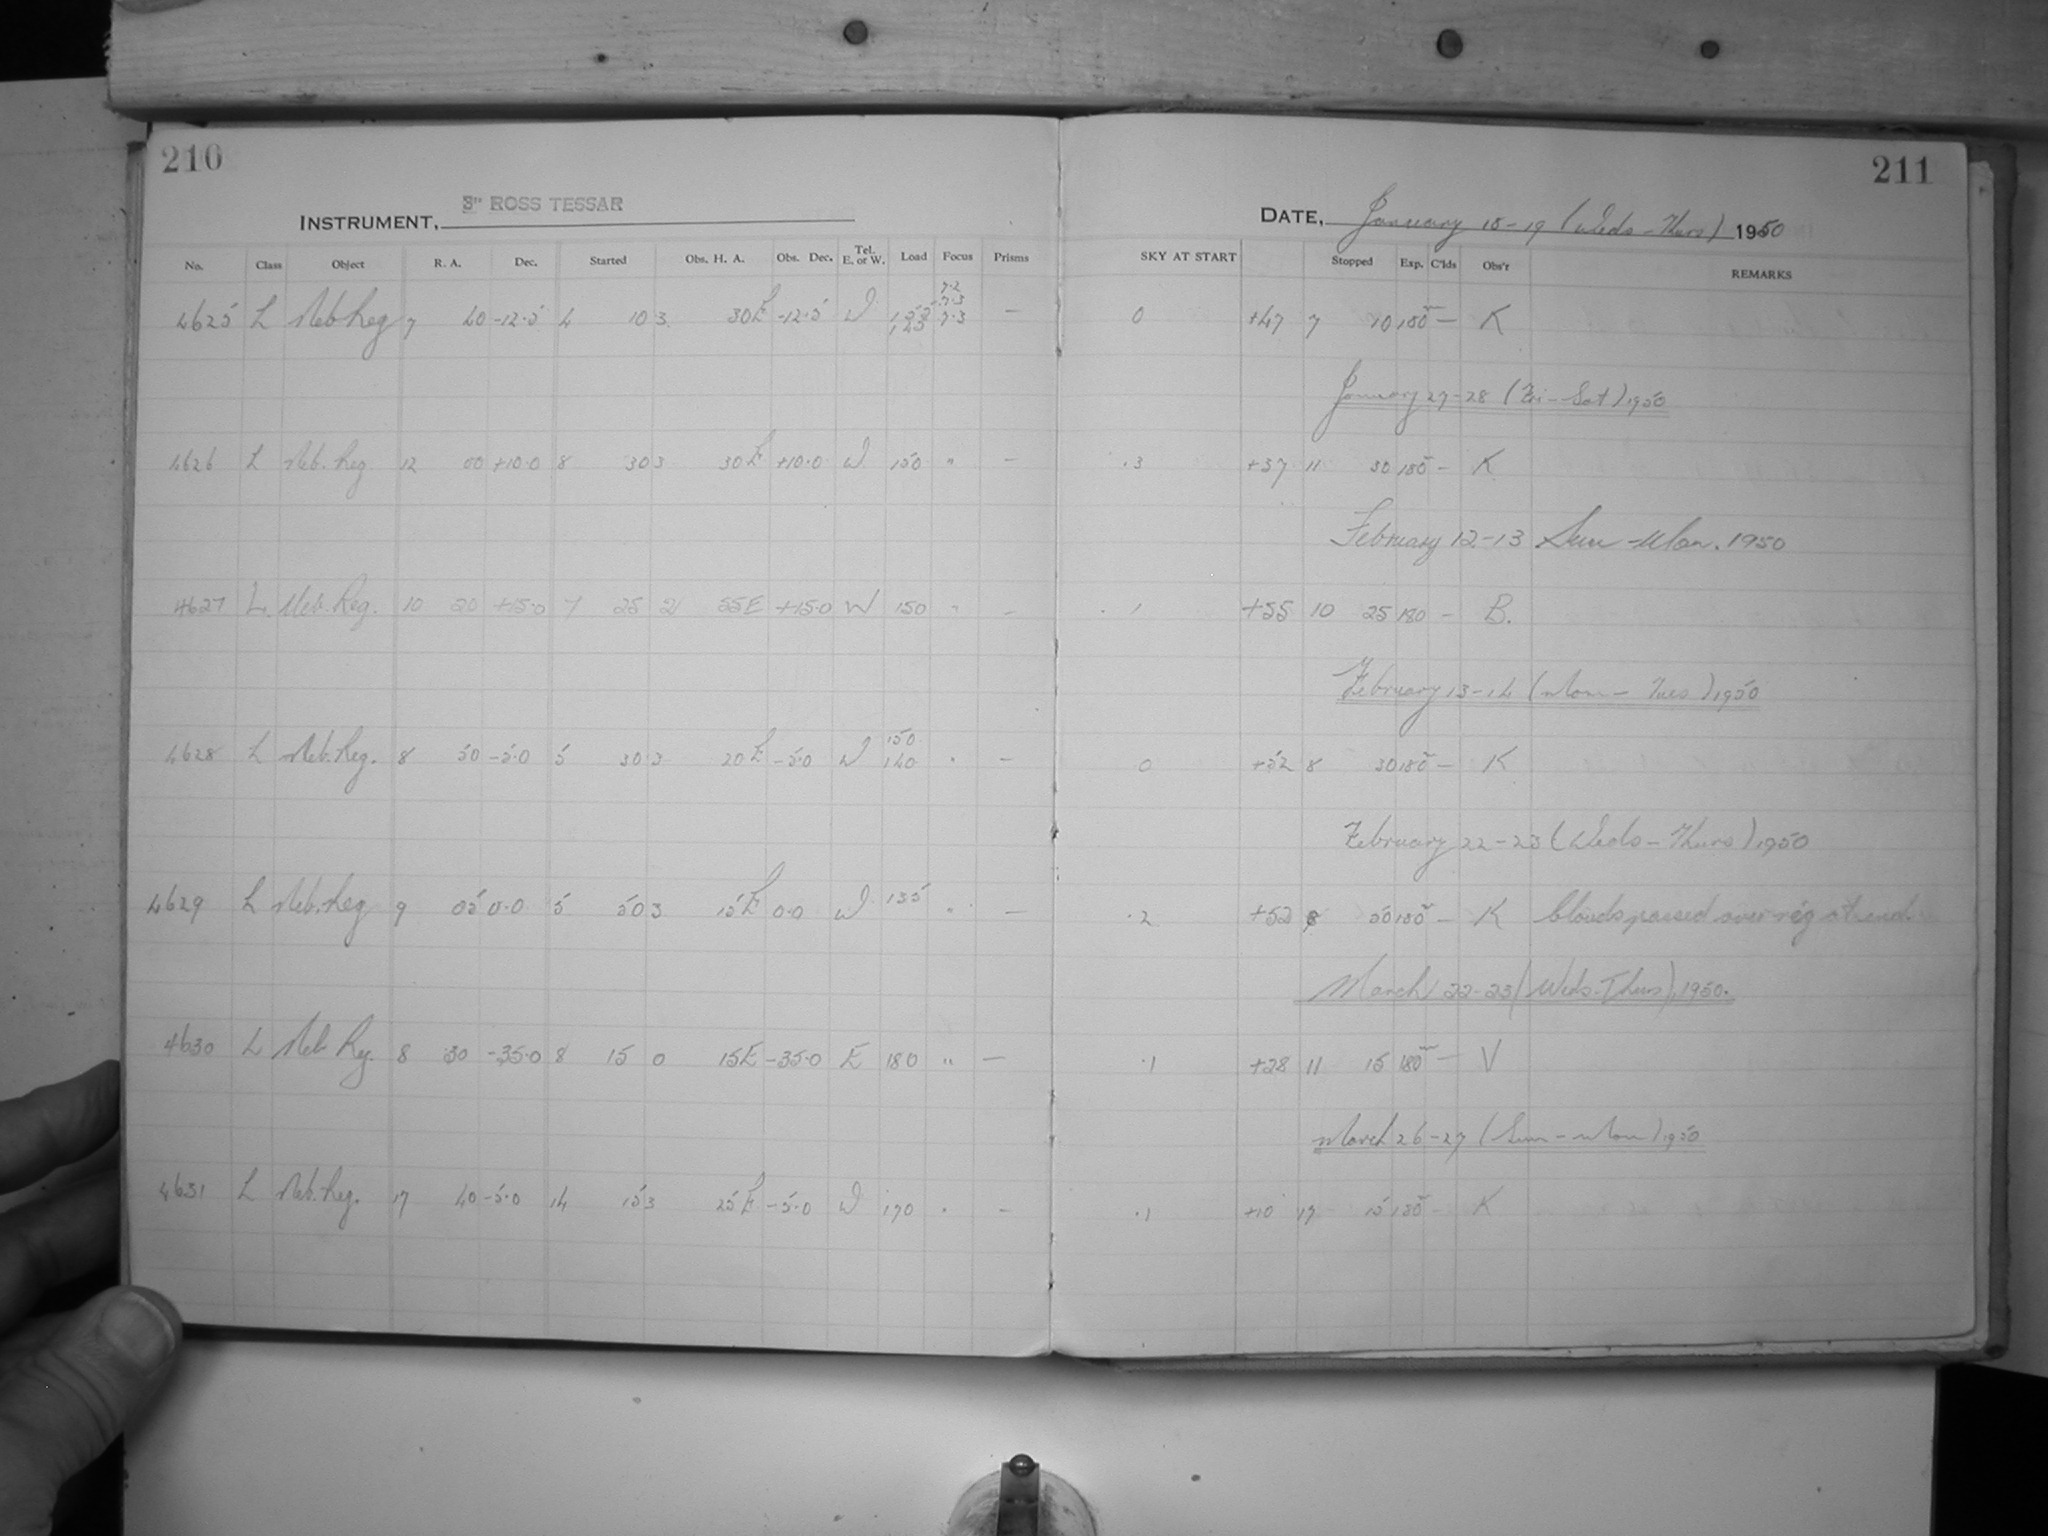 210
211
INSTRUMENT, 3" ROSS TESSAR
DATE, January 18-19 (Weds-Thurs) 1950
No. Class Object R. A. Dec. Started Obs. H. A. Obs. Dec. Tel. E. or W. Load Focus Prisms SKY AT START Stopped Exp. C'lds Obs'r REMARKS
7.2
7.3
4625 L Neb Reg 7 40 -12.5 4 10 3 30 E -12.5 W 7.3 — 0 +47 7 10 180 — K
January 27-28 (Fri-Sat) 1950
4626 L Neb. Reg 12 00 +10.0 8 30 3 30 E +10.0 W 150 " — .3 +37 11 30 180 — K
February 12-13 Sun-Mon. 1950
4627 L Neb. Reg. 10 20 +15.0 7 25 2 55 E +15.0 W 150 " — .1 +55 10 25 180 — B.
February 13-14 (Mon-Tues) 1950
150
4628 L Neb. Reg. 8 50 -5.0 5 30 3 20 E -5.0 W 140 " — 0 +52 8 30 180 — K
February 22-23 (Weds-Thurs) 1950
4629 L Neb. Reg 9 05 0.0 5 50 3 15 E 0.0 W 135 " — .2 +52 8 50 180 — K Clouds passed over reg at end.
March 22-23 (Weds-Thurs), 1950.
4630 L Neb Reg. 8 30 -35.0 8 15 0 15 E -35.0 E 180 " — .1 +28 11 15 180 — V
March 26-27 (Sun-Mon) 1950
4631 L Neb. Reg. 17 40 -5.0 14 15 3 25 E -5.0 W 170 " — .1 +10 17 15 180 — K